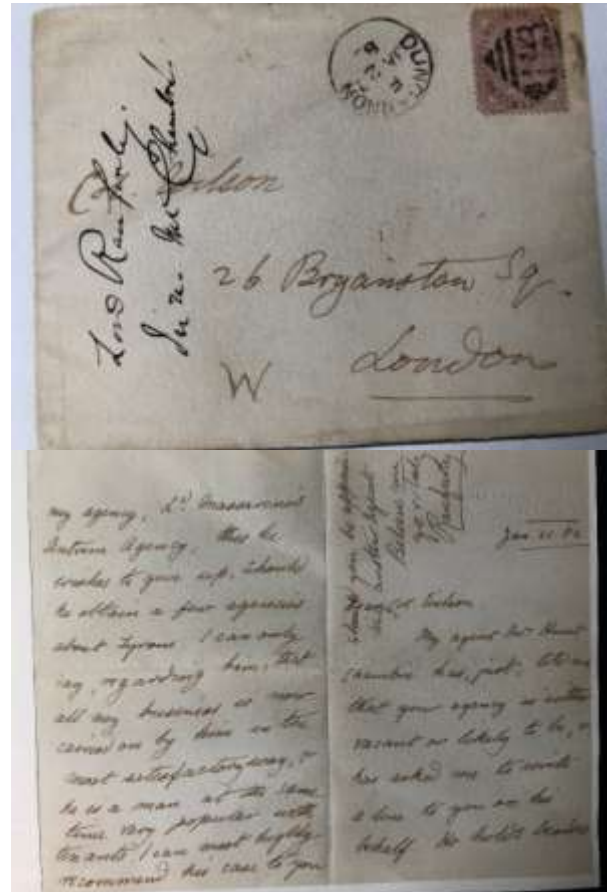 DUNGANNON
Lord Ranfurly.
26 Bryanston Sq.
W London
my agency, Ld Massereene's
Antrim Agency, this he
wishes to give up, should
he obtain a few agencies
about Tyrone I can only
say, regarding him, that
all my business is now
carried on by him in the
most satisfactory way, &
he is a man at the same
time very popular with
tenants I can most highly
recommend his case to you
should you be
Believe me
yrs truly
Ranfurly
Jan 21 82
My agent Mr
has just
that your agency is either
vacant or likely to be, &
has asked me to write
a line to you on his
behalf He holds besides